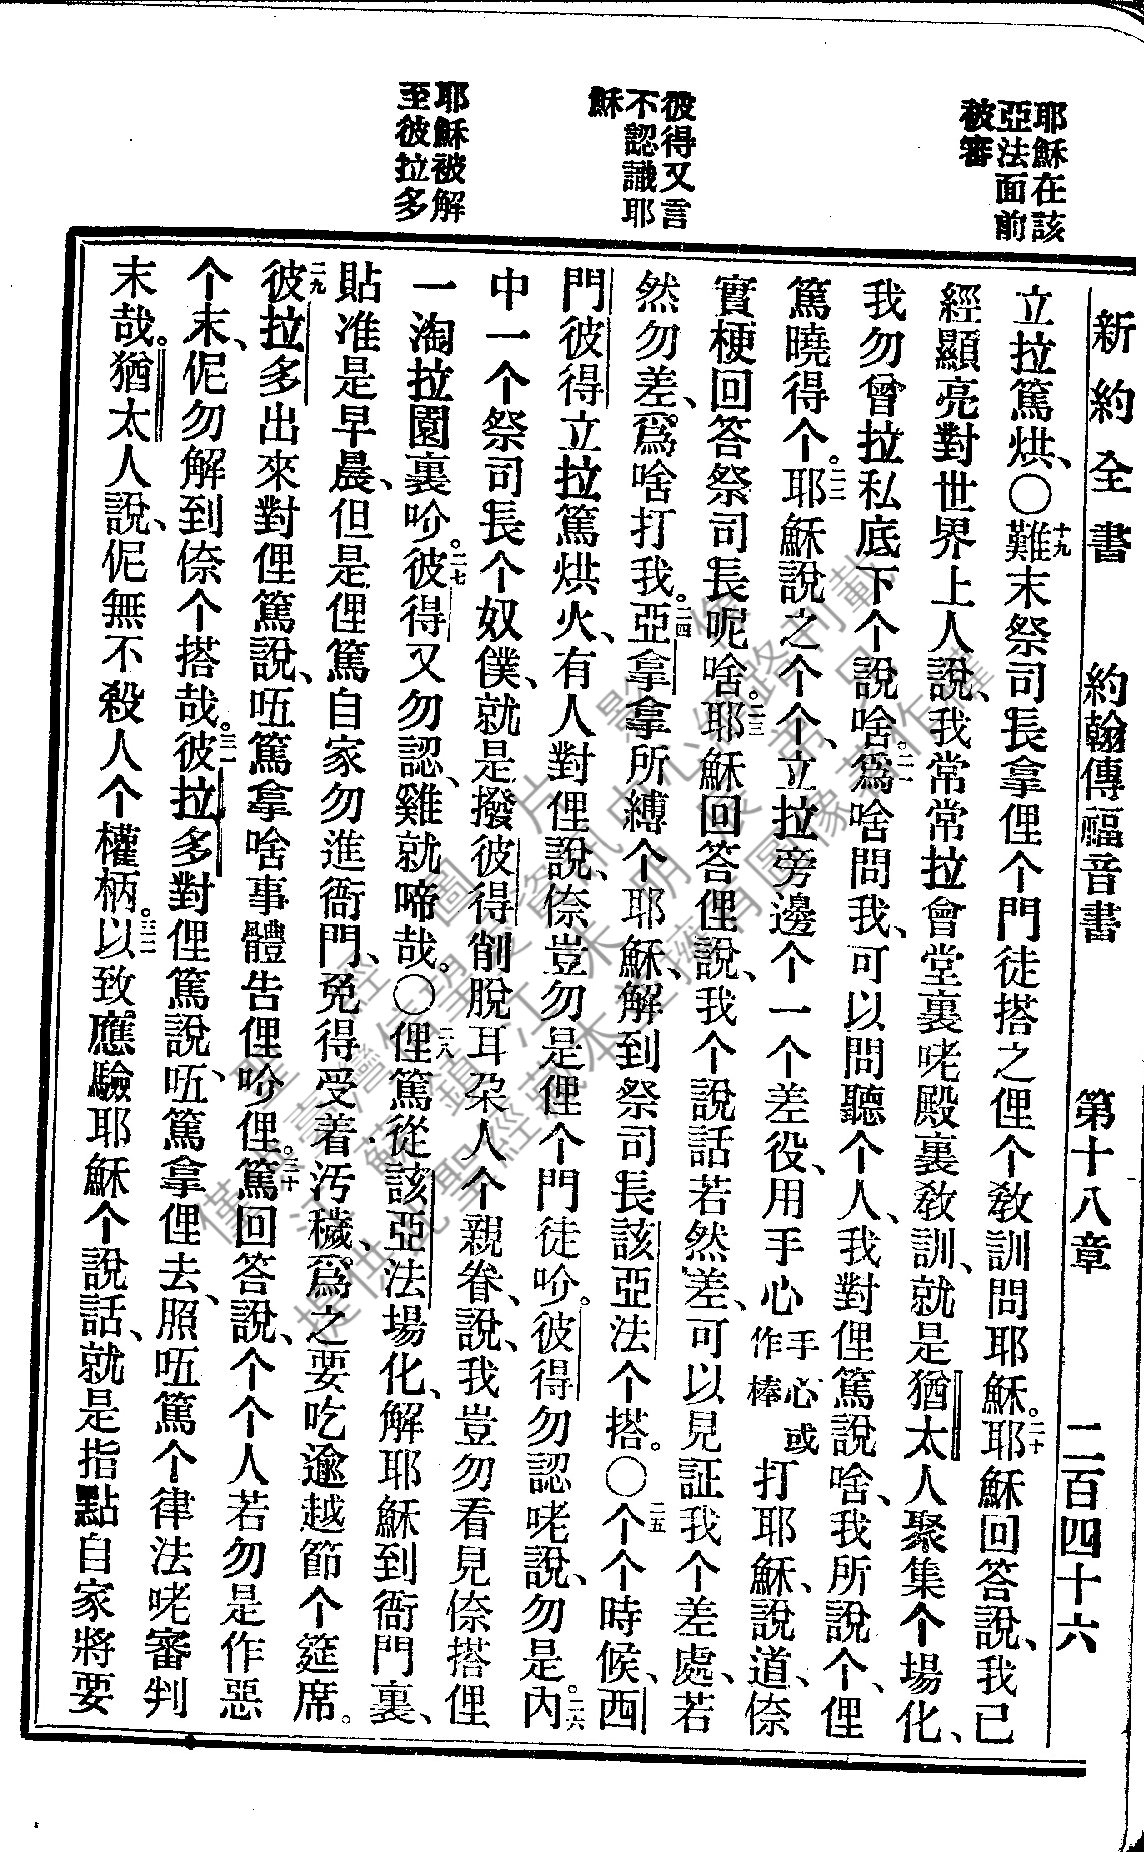 新約全書　約翰傳福音書　第十八章　二百四十六
耶穌在該
亞法面前
被審
彼得又言
不認識耶
穌
耶穌被解
至彼拉多
立拉篤烘、〇十九難末祭司長拿俚个門徒搭之俚个敎訓問耶穌。二十耶穌回答說、我已
經顯亮對世界上人說、我常常拉會堂裏咾殿裏敎訓、就是猶太人聚集个場化、
我勿曾拉私底下个說啥。二一爲啥問我、可以問聽个人、我對俚篤說啥、我所說个、俚
篤曉得个。二二耶穌說之个个、立拉旁邊个一个差役、用手心手心或作棒打耶穌、說道、倷
實梗回答祭司長呢啥。二三耶穌回答俚說、我个說話若然差、可以見証我个差處、若
然勿差、爲啥打我。二四亞拿拿所縛个耶穌、解到祭司長該亞法个搭。〇二五个个時候、西
門彼得立拉篤烘火、有人對俚說、倷豈勿是俚个門徒吤。彼得勿認咾說、勿是。二六內
中一个祭司長个奴僕、就是撥彼得削脫耳朶人个親眷、說、我豈勿看見倷搭俚
一淘拉園裏吤。二七彼得又勿認、雞就啼哉。〇二八俚篤從該亞法場化、解耶穌到衙門裏、
貼准是早晨、但是俚篤自家勿進衙門、免得受着汚穢、爲之要吃逾越節个筵席。
二九彼拉多出來對俚篤說、㕶篤拿啥事體告俚吤。三十俚篤回答說、个个人若勿是作惡
个末、伲勿解到倷个搭哉。三一彼拉多對俚篤說、㕶篤拿俚去、照㕶篤个律法咾審判
末哉。猶太人說、伲無不殺人个權柄。三二以致應驗耶穌个說話、就是指點自家將要